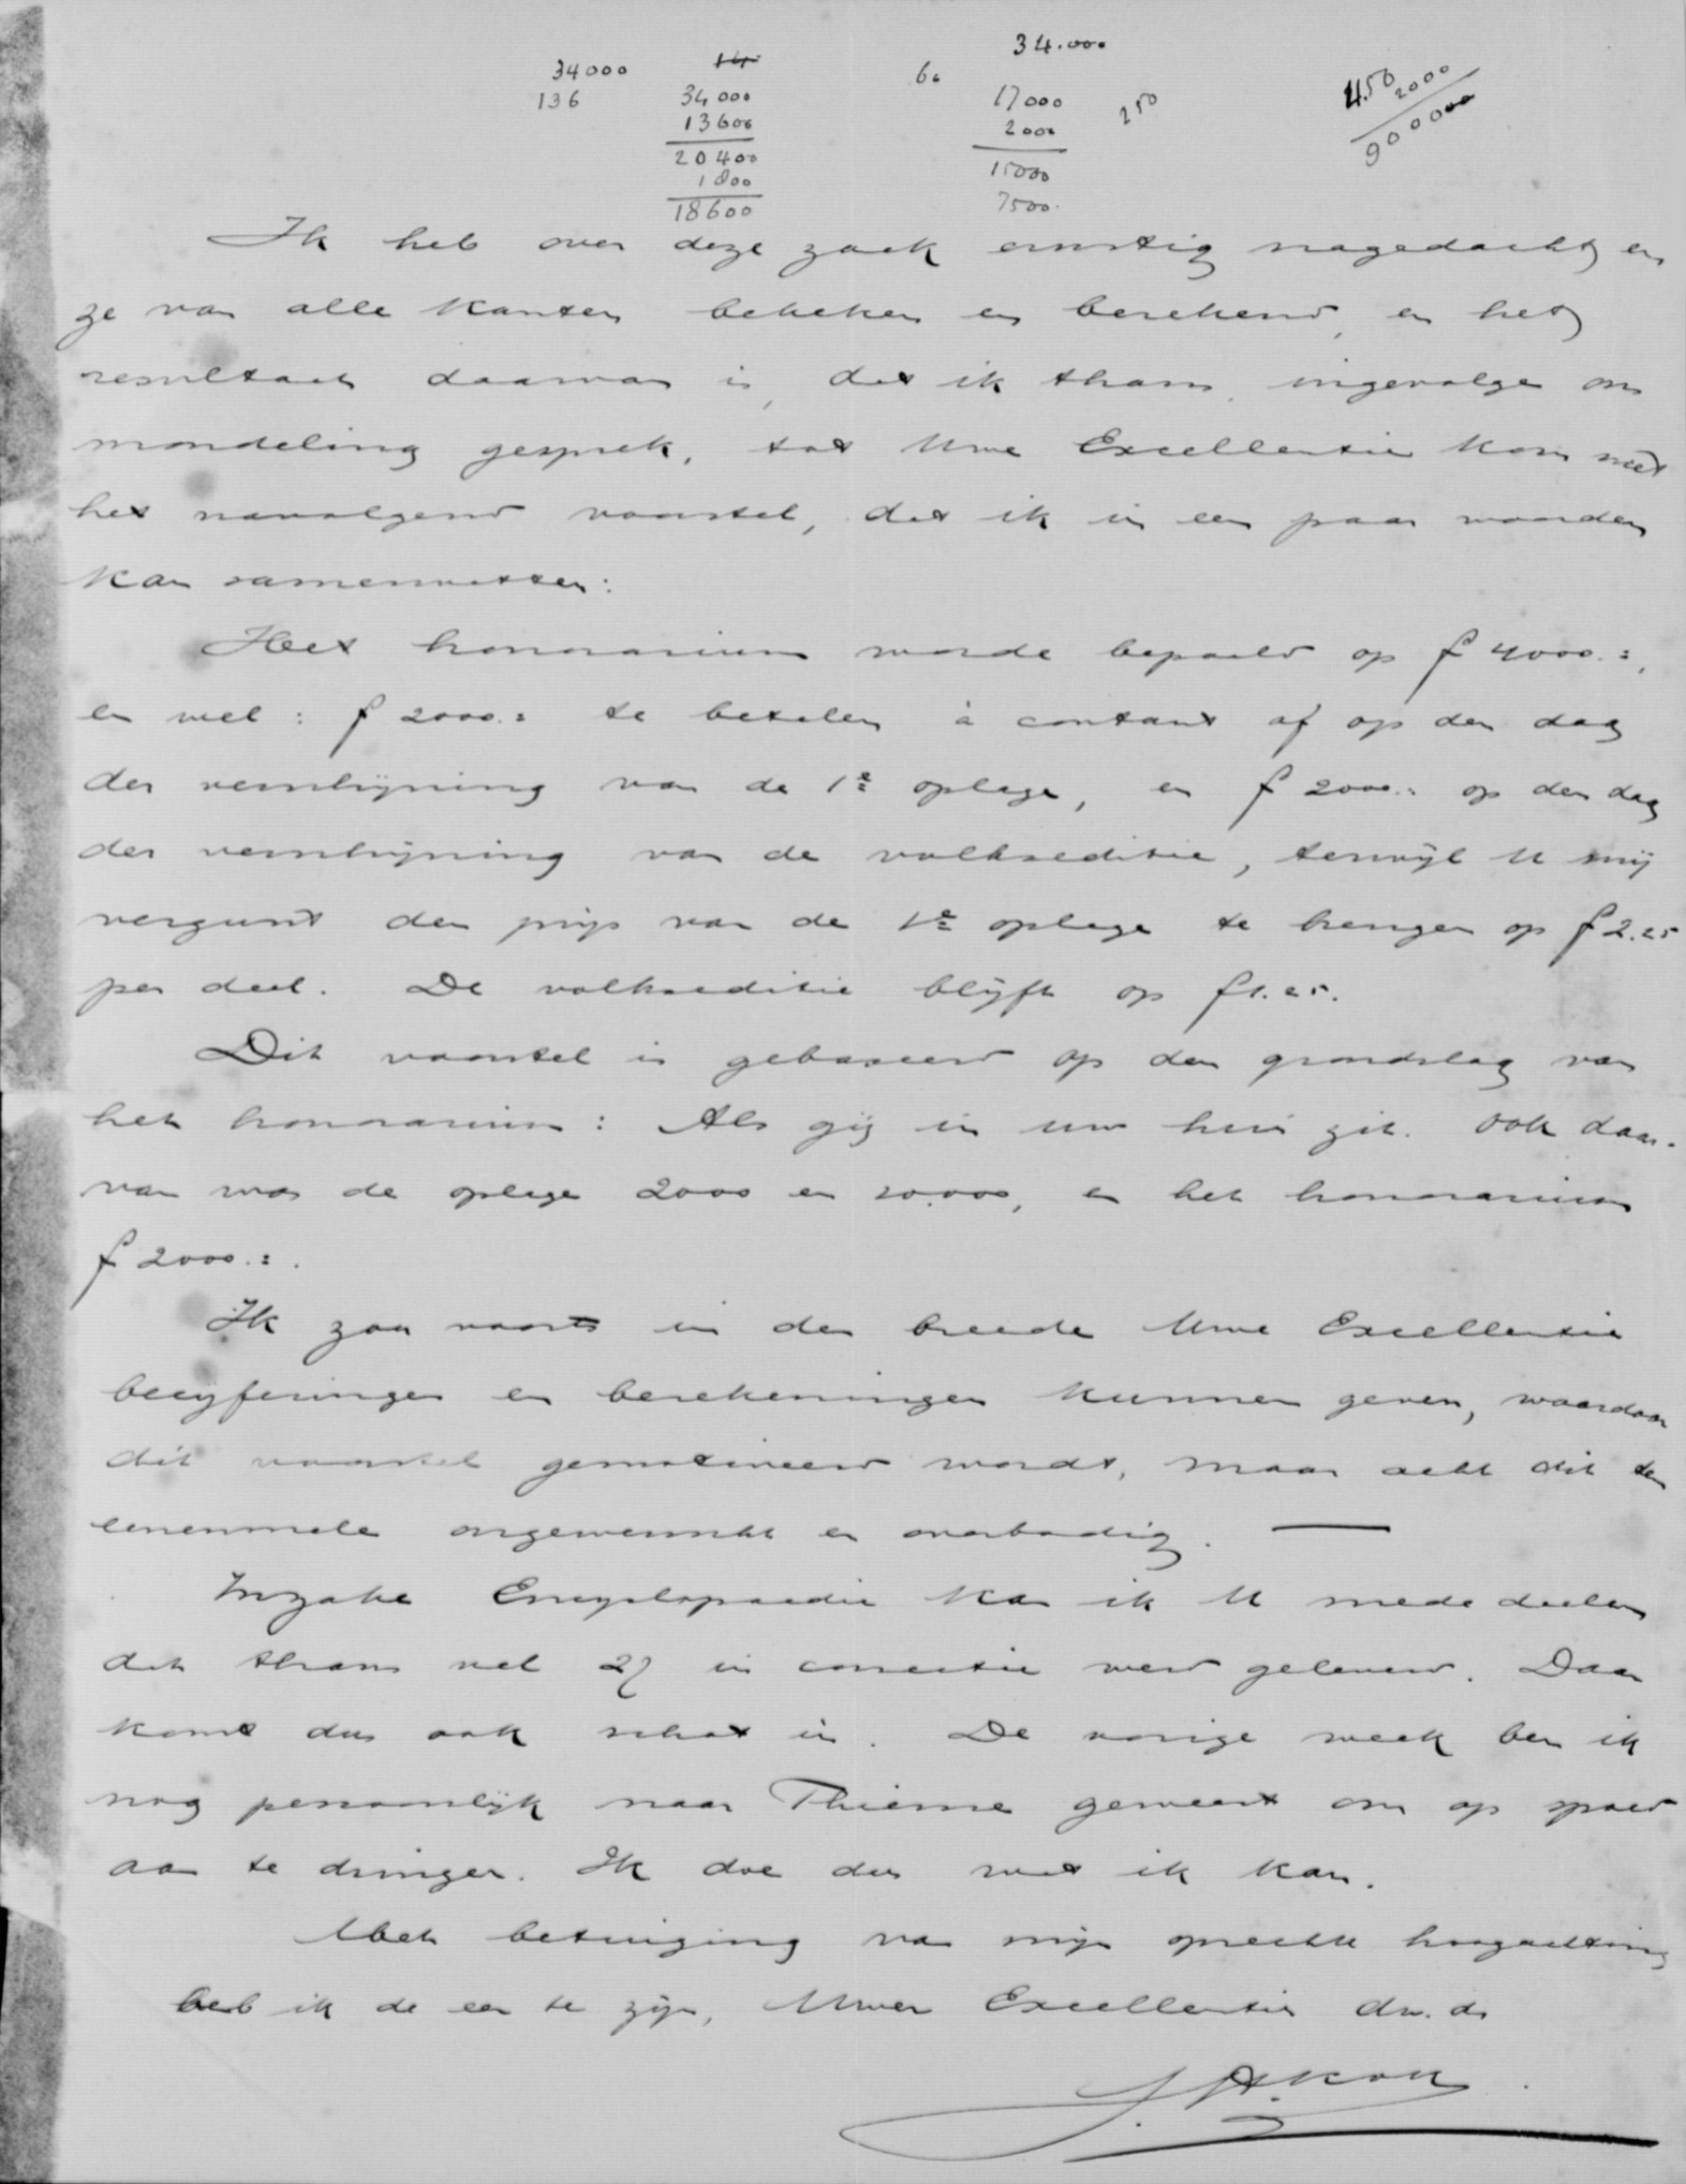 34000
136
14
34000
13600
20400
1800
18600
60
34.000
17000
2000
15000
7500.
250
4.50
2000
900000
Ik heb over deze zaak ernstig nagedacht en
ze van alle kanten bekeken en berekend, en het
resultaat daarvan is, dat ik thans, ingevolge ons
mondeling gesprek, tot Uwe Excellentie kom met
het navolgend voorstel, dat ik in een paar woorden
kan samenvatten:
Het honorarium worde bepaald op f 4000.=,
en wel: f 2000.= te betalen à contant af op den dag
der verschijning van de 1e oplage, en f 2000.= op den dag
der verschijning van de volkseditie, terwijl U mij
vergunt den prijs van de 1e oplage te brengen op f 2.25
per deel. De volkseditie blijft op f 1.25.
Dit voorstel is gebaseerd op den grondslag van
het honorarium: Als gij in uw huis zit. Ook daar-
van was de oplage 2000 en 10.000, en het honorarium
f 2000.=.
Ik zou voorts in den breede Uwe Excellentie
becijferingen en berekeningen kunnen geven, waardoor
dit voorstel gemotiveerd wordt, maar acht dit ten
eenenmale ongewenscht en overbodig. —
Inzake Encyclopaedie kan ik U mede deelen
dat thans vel 27 in correctie werd geleverd. Daar
komt dus ook schot in. De vorige week ben ik
nog persoonlijk naar Thieme geweest om op spoed
aan te dringen. Ik doe dus wat ik kan.
Met betuiging van mijn oprechte hoogachting
heb ik de eer te zijn, Uwer Excellentie dw. dr
J. A. Kok